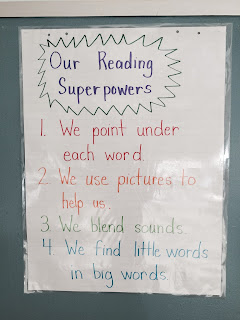 Our Reading
Superpowers
1. We point under
each word.
2. We use pictures to
help us.
3. We blend sounds.
4. We find little words
in big words.